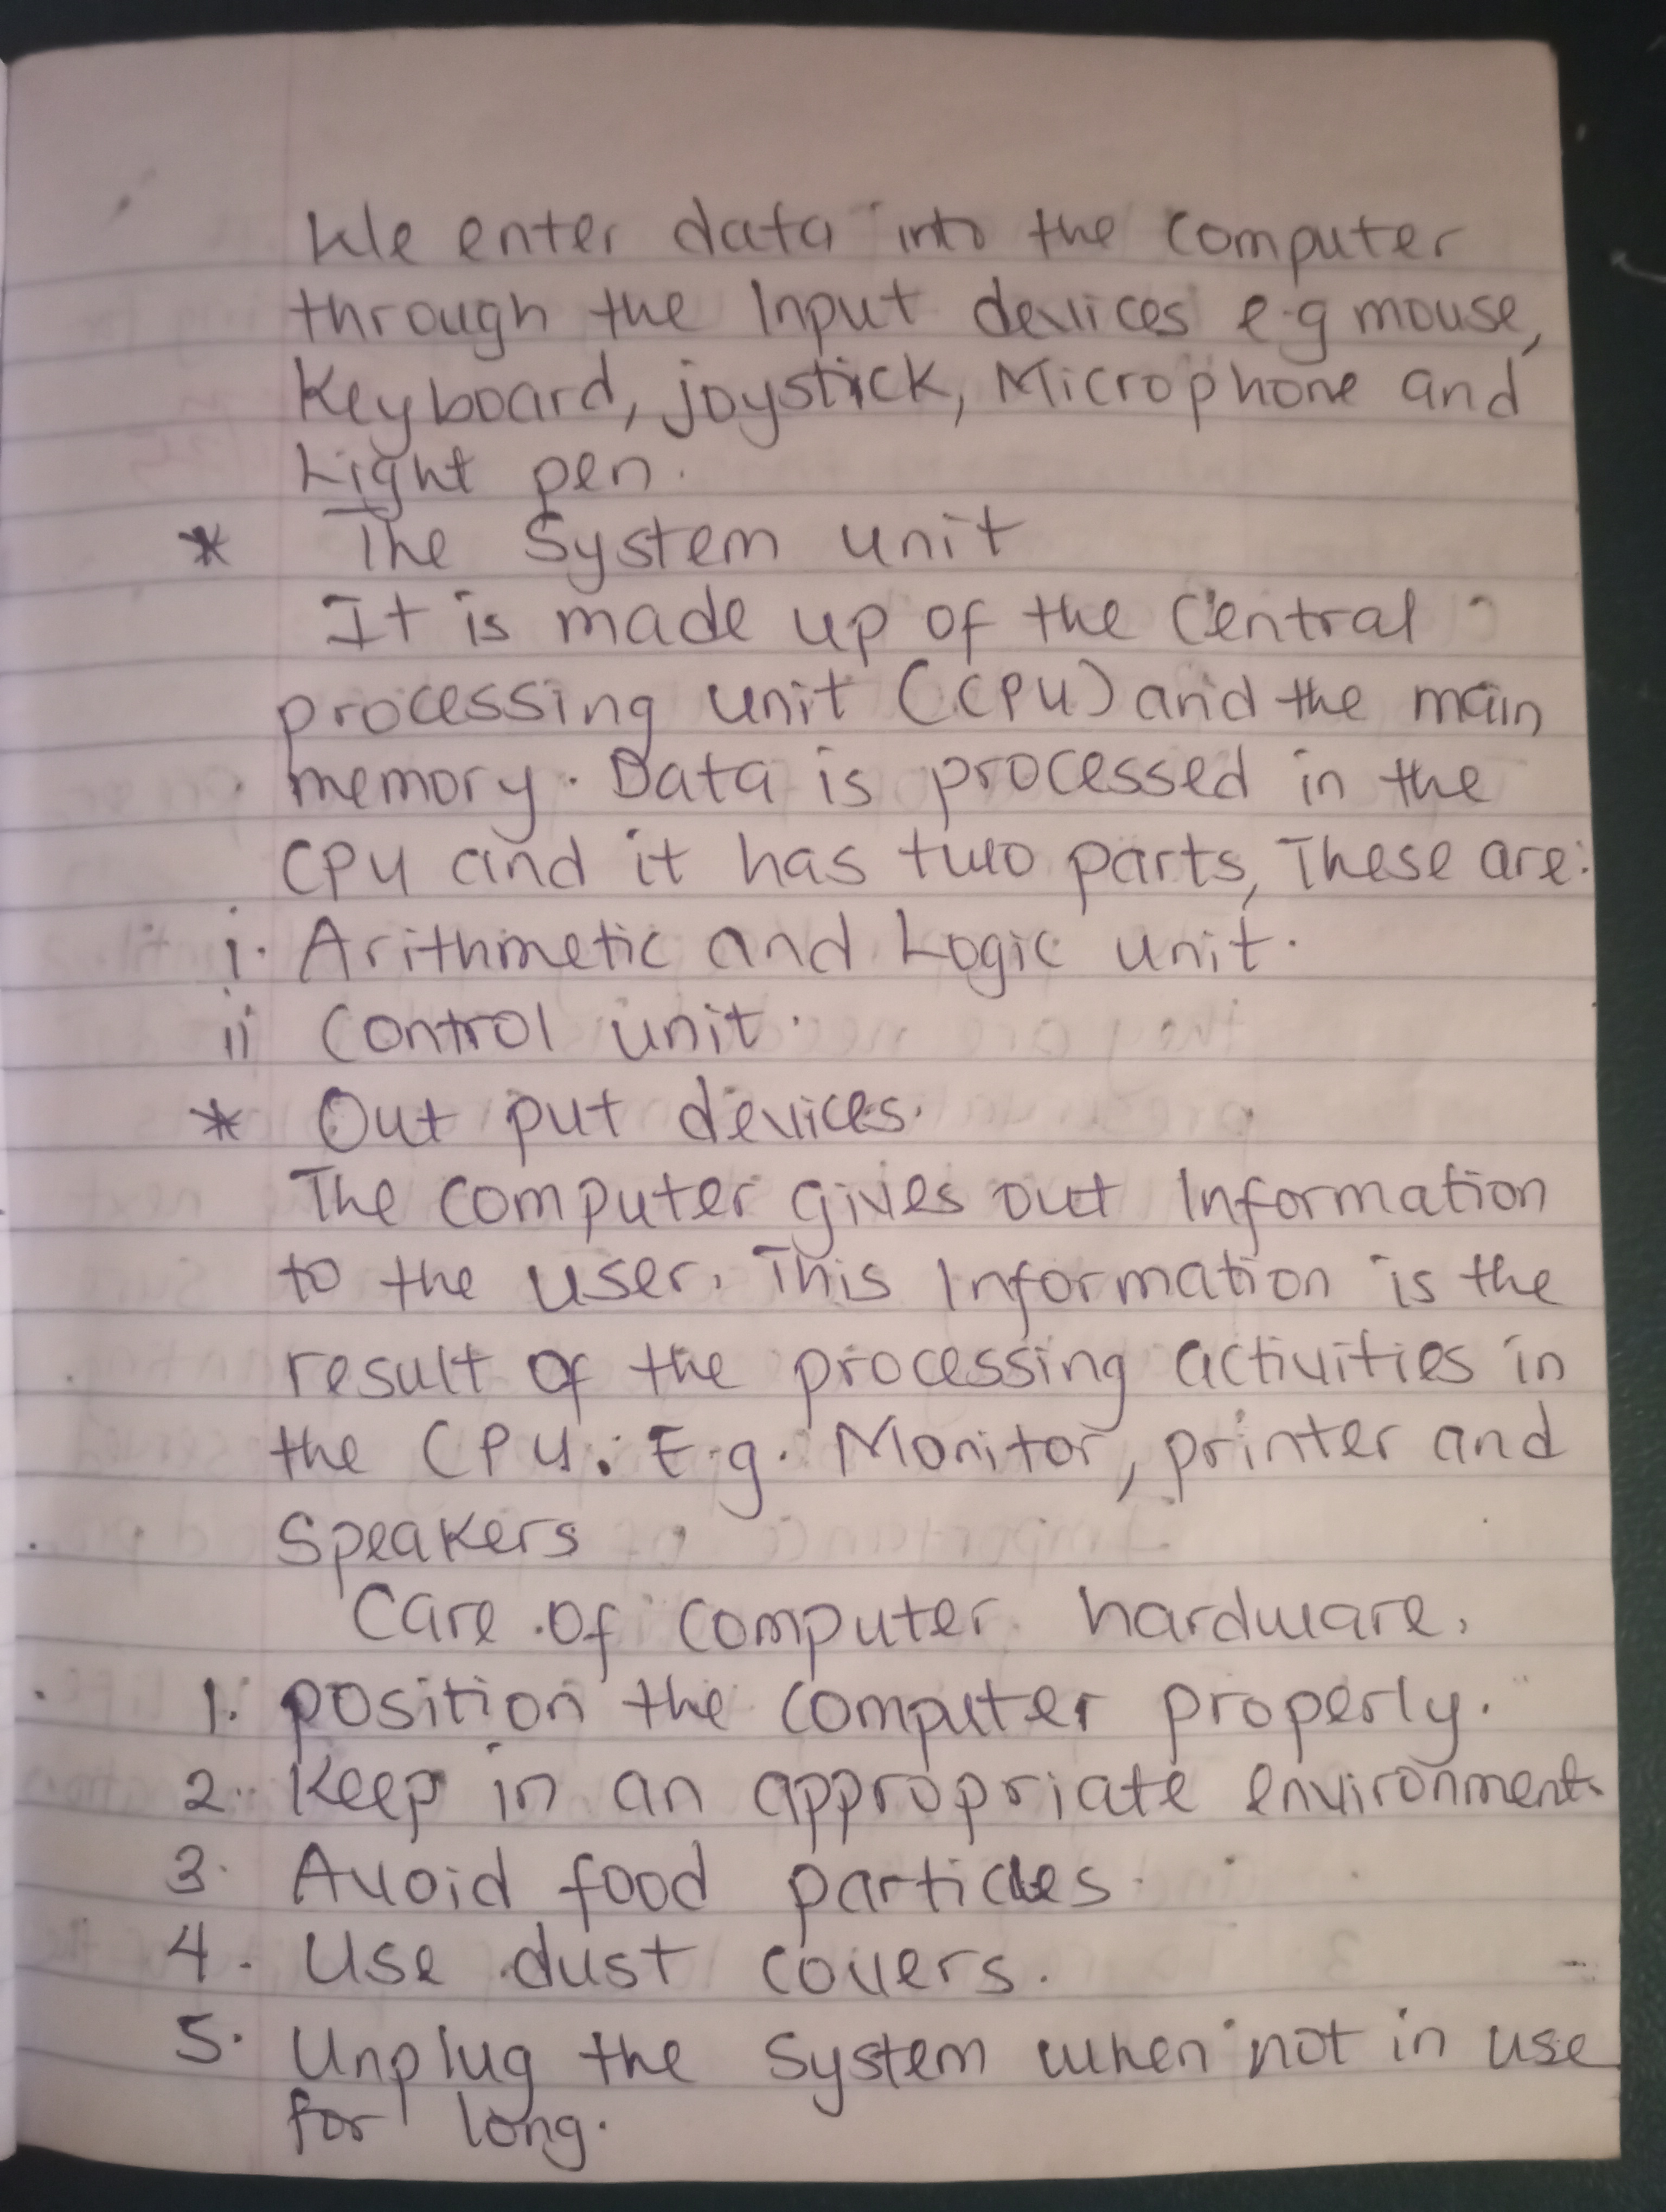 We enter data into the computer
through the Input devices e.g mouse,
Keyboard, joystick, Microphone and
Light pen.
* The System unit
It is made up of the Central
processing unit (CPU) and the main
memory. Data is processed in the
CPU and it has two parts, These are:
i. Arithmetic and Logic unit.
ii Control unit.
* Out put devices.
The computer gives out Information
to the user. This Information is the
result of the processing activities in
the CPU. E.g. Monitor, printer and
Speakers
Care of computer hardware.
1. position the computer properly.
2. Keep in an appropriate environment.
3. Avoid food particles.
4. Use dust covers.
5. Unplug the System when not in use
for long.